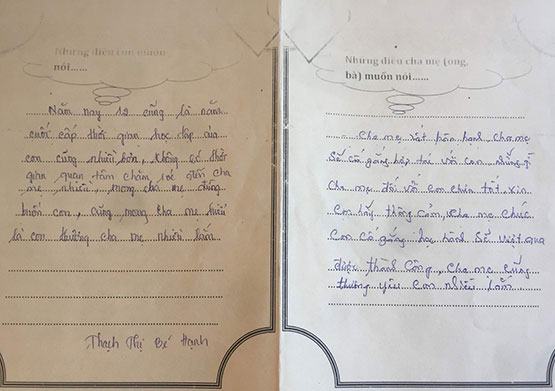 Những điều con muốn
nói......
Năm nay 12 cũng là năm
cuối cấp thời gian học tập của
con cũng nhiều hơn, không có thời
gian quan tâm chăm sóc đến cha
mẹ nhiều, mong cha mẹ đừng
buồn con, cũng mong cha mẹ hiểu
là con thương cha mẹ nhiều lắm.
Thạch Thị Bé Hạnh
Những điều cha mẹ (ông,
bà) muốn nói......
Cha mẹ rất hân hạnh, cha mẹ
Sẽ cố gắng hợp tác với con những gì
Cha mẹ đối với con chưa tốt, xin
Con hãy thông cảm, cha mẹ chúc
Con cố gắng học hành Sẽ vượt qua
được thành công, cha mẹ cũng
thương yêu con nhiều lắm